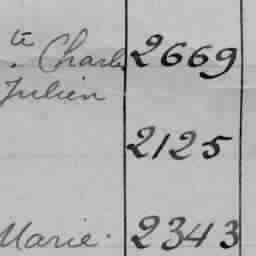 te. Charles 2669
Julien
2125
Marie. 2343